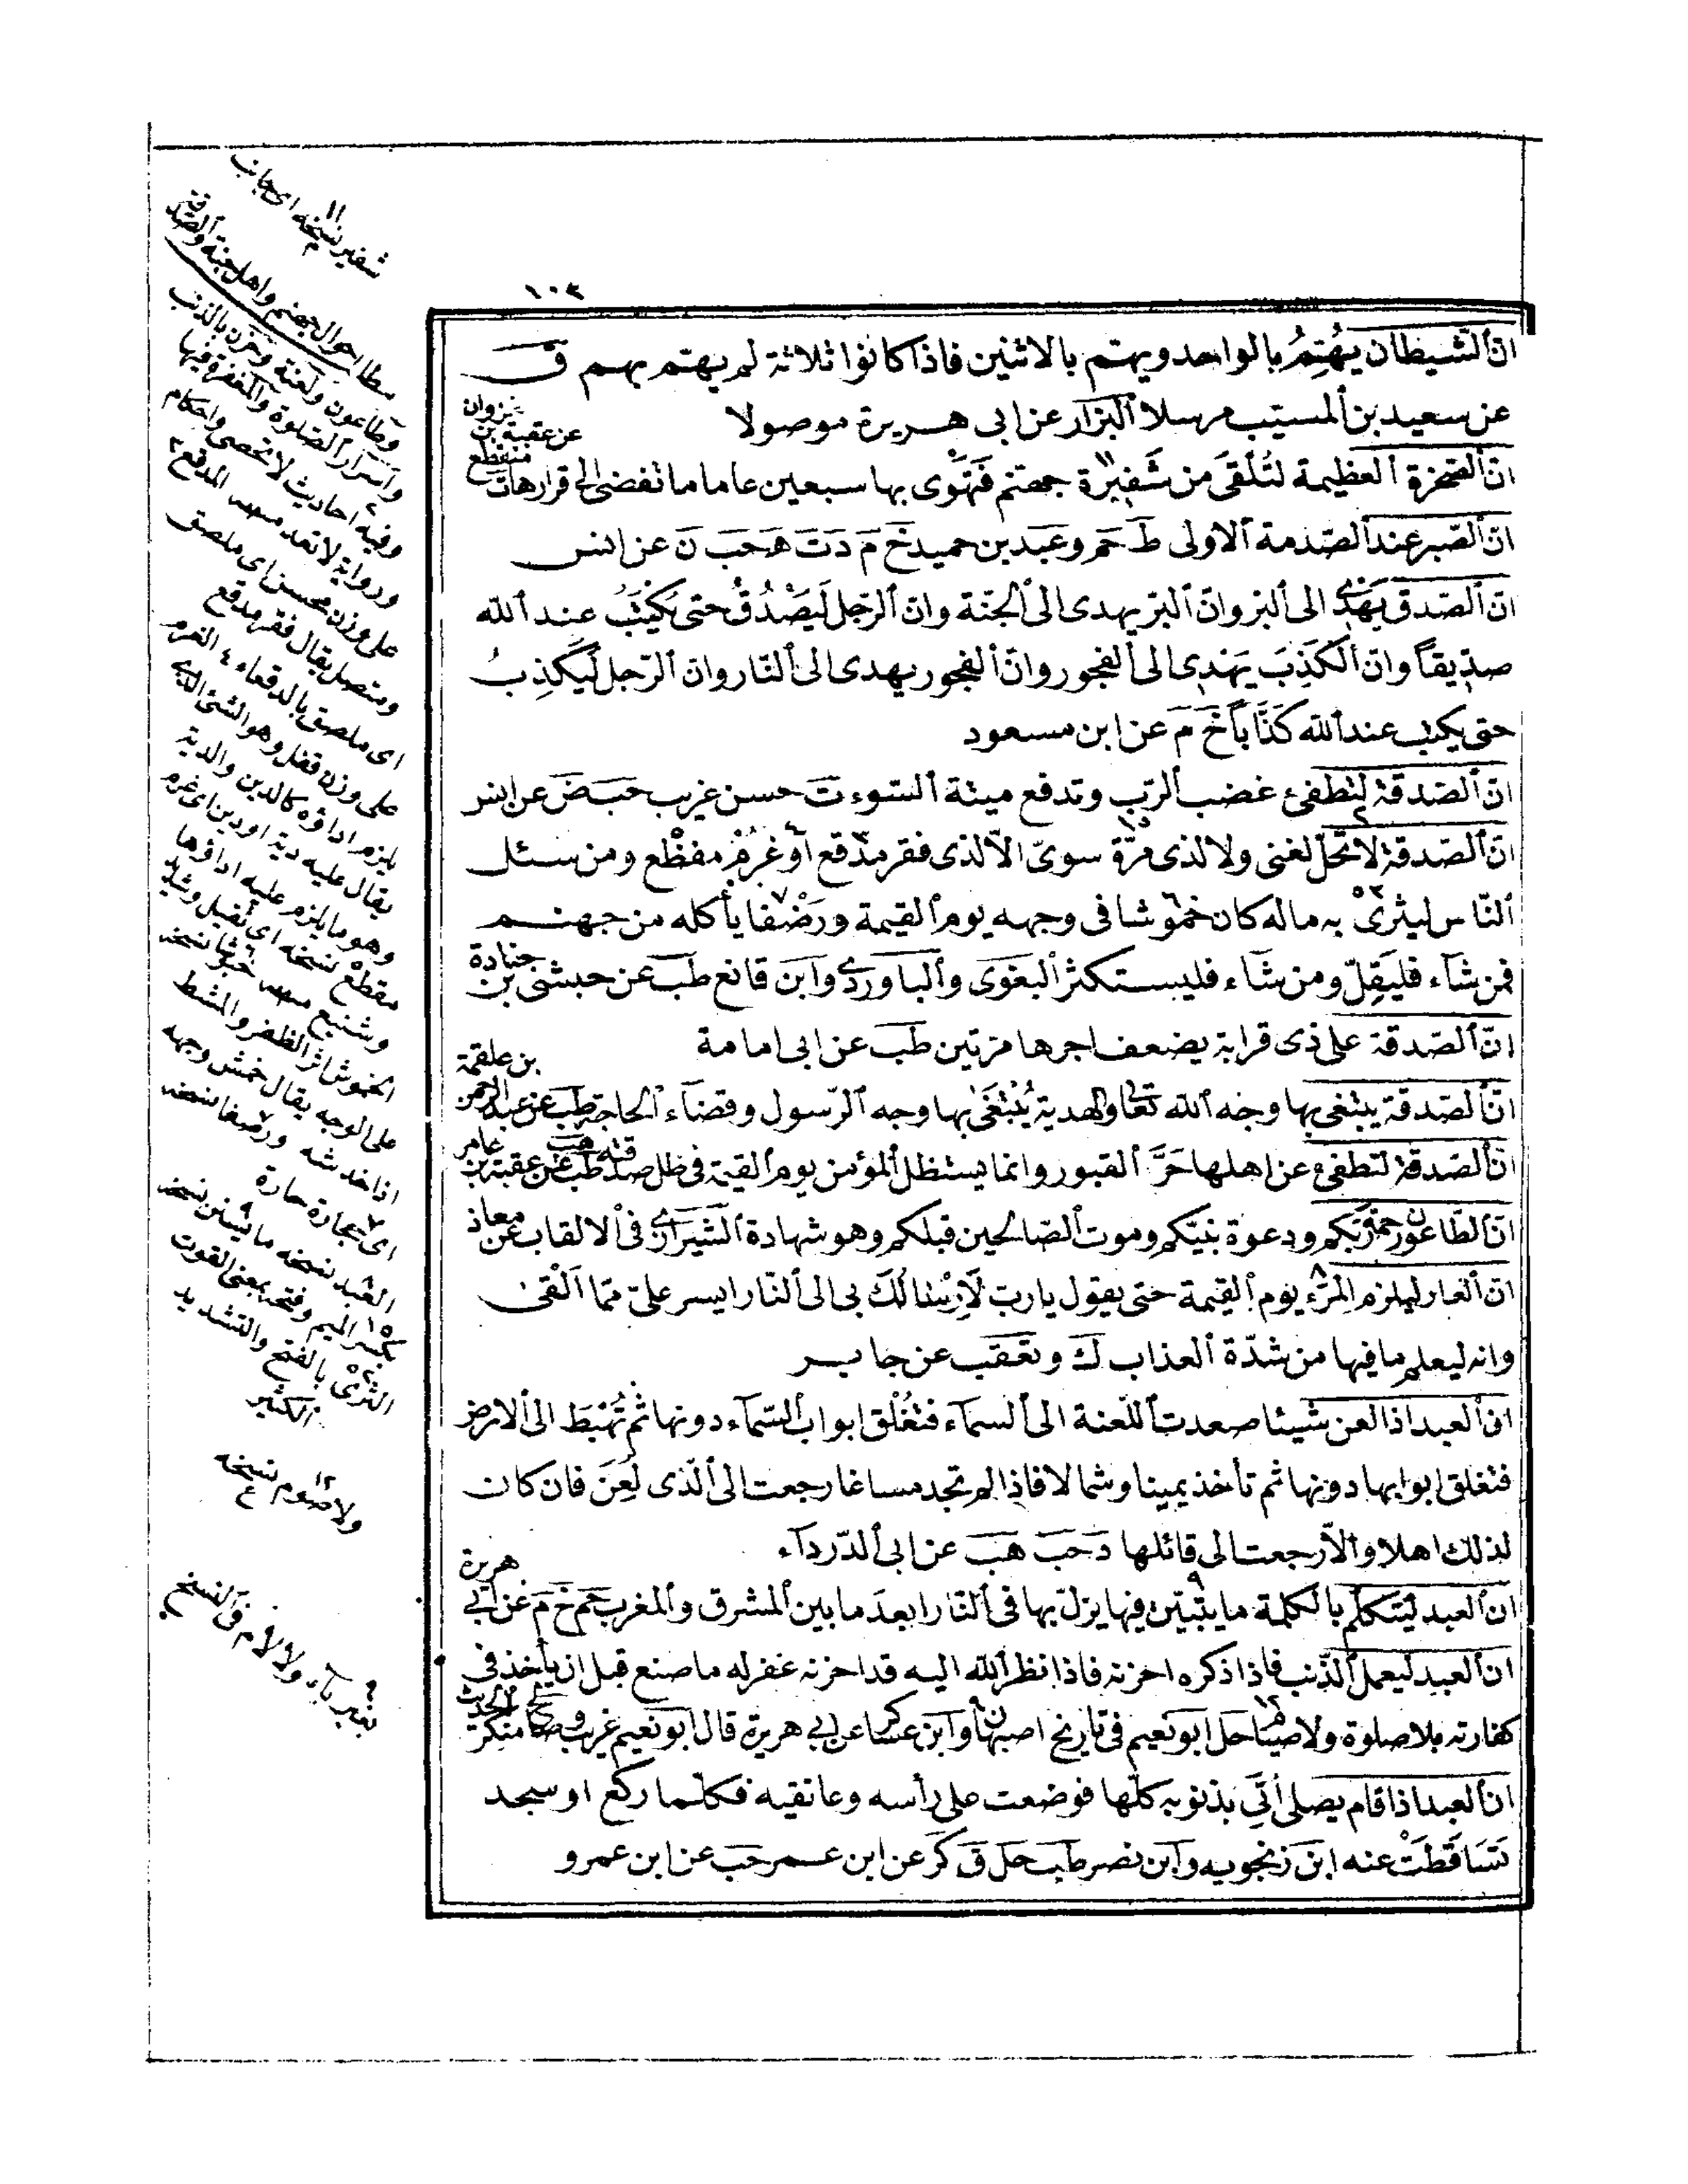 ١٠٣
ان الشيطان يهتم بالواحد ويهتم بالاثنين فاذا كانوا ثلاثة لم يهتم بهم ق
عن سعيد بن المسيب مرسلا البزار عن ابى هريرة موصولا
ان الصخرة العظيمة لتلقى من شفيرة جهنم فتهوى بها سبعين عاما ما تفضى الى قرارها ت منقطع عن عقبة بن غزوان
ان الصبر عند الصدمة الاولى ط حم وعبد بن حميد خ م د ت ه حب ن عن انس
ان الصدق يهدى الى البر وان البر يهدى الى الجنة وان الرجل ليصدق حتى يكتب عند الله
صديقا وان الكذب يهدى الى الفجور وان الفجور يهدى الى النار وان الرجل ليكذب
حتى يكتب عند الله كذابا خ م عن ابن مسعود
ان الصدقة لتطفئ غضب الرب وتدفع ميتة السوء ت حسن غريب حب ض عن انس
ان الصدقة لا تحل لغنى ولا لذى مرة سوى الا لذى فقر مدقع أو غرم مفظع ومن سئل
الناس ليثرى به ماله كان خموشا فى وجهه يوم القيمة ورضفا يأكله من جهنم
فمن شآء فليقل ومن شآء فليستكثر البغوى والباوردى وابن قانع طب عن حبشى بن جنادة
ان الصدقة على ذى قرابة يضعف اجرها مرتين طب عن ابى امامة
ان الصدقة يبتغى بها وجه الله تعا والهدية يبتغى بها وجه الرسول وقضآء الحاجة طب عن عبد الرحمن بن علقمة
ان الصدقة لتطفئ عن اهلها حر القبور وانما يستظل المؤمن يوم القيمة فى ظل صدقته طب هب عن عقبة بن عامر
ان الطاعون رحمة ربكم ودعوة نبيكم وموت الصالحين قبلكم وهو شهادة الشيرازى فى الالقاب عن معاذ
ان العار ليلزم المرء يوم القيمة حتى يقول يا رب لارسالك بى الى النار ايسر على مما القى
وانه ليعلم ما فيها من شدة العذاب ك وتعقب عن جابر
ان العبد اذا لعن شيئا صعدت اللعنة الى السمآء فتغلق ابواب السمآء دونها ثم تهبط الى الارض
فتغلق ابوابها دونها ثم تأخذ يمينا وشمالا فاذا لم تجد مساغا رجعت الى الذى لعن فان كان
لذلك اهلا والا رجعت الى قائلها د حب هب عن ابى الدردآء
ان العبد ليتكلم بالكلمة ما يتبين فيها يزل بها فى النار ابعد ما بين المشرق والمغرب حم خ م عن ابى هريرة
ان العبد ليعمل الذنب فاذا ذكره احزنه فاذا نظر الله اليه قد احزنه غفر له ما صنع قبل ان يأخذ فى
كفارته بلا صلوة ولا صيام حل ابو نعيم فى تاريخ اصبهان وابن عساكر عن ابى هريرة قال ابو نعيم غريب منكر الحديث
ان العبد اذا قام يصلى اتى بذنوبه كلها فوضعت على رأسه وعاتقيه فكلما ركع او سجد
تساقطت عنه ابن زنجويه وابن نصر طب حل ق كر عن ابن عمر حب عن ابن عمرو
شفير نسخه اى جانب
مطلب احوال جهنم واهل جنة والصدقة
وطاعون ولعنة وحزن بالذنب
واسرار الصلوة والمغفرة فيها
وفيه احاديث لا تحصى واحكام
ورواية لا تعد المدقع
على وزن محسن اى ملصق
ومتصل يقال فقر مدقع
اى ملصق بالدقعاء ٤ الغرم
على وزن قفل وهو الشئ الذى
يلزم اداؤه كالدين والدية
يقال عليه دية او دين اى غرم
وهو ما يلزم عليه اداؤها
مقطع نسخه اى ثقيل وشديد
وشنيع
الخموش اثر الظفر والمشط
على الوجه يقال خمش وجهه
اذا خدشه ورضيفا نسخه
اى حجارة حارة
العبد نسخه ما يتبين نسخه
بكسر الميم وفتحه بمعنى القوت
الثرى بالفتح والتشديد
الكثير
ولا صوم نسخه
بغير رآء ولا لام فى النسخ